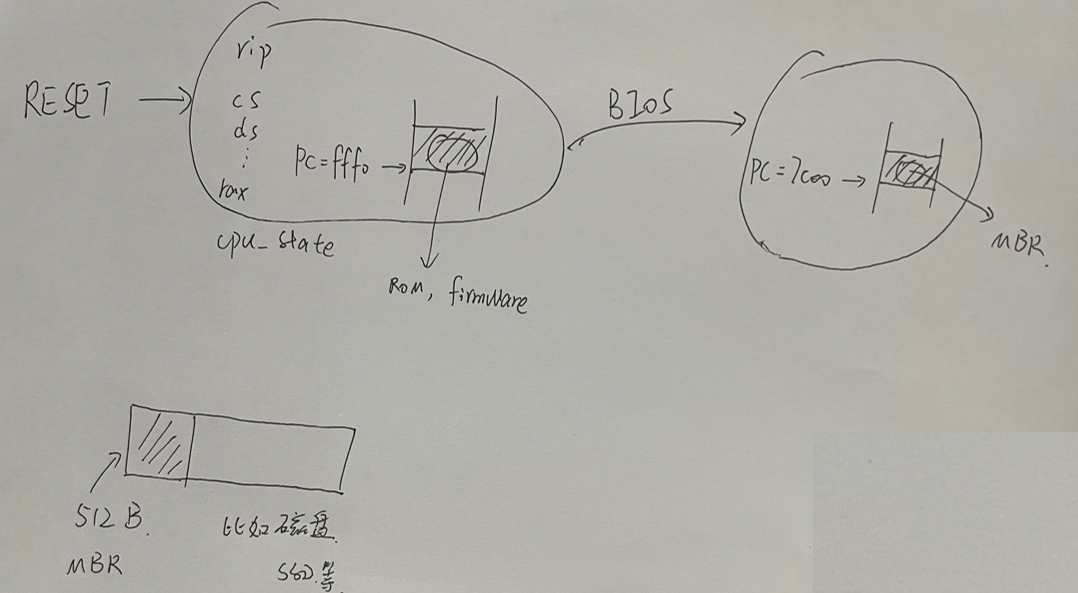 RESET
rip
cs
ds
⋮
rax
PC=fff0
cpu_state
ROM, firmware
BIOS
PC=7c00
MBR.
512 B.
MBR
比如磁盘.
SSD.等.